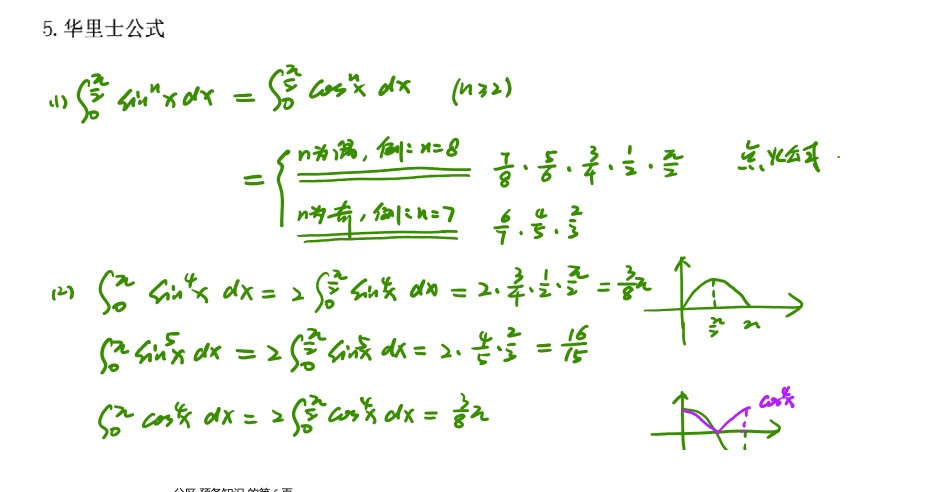 5. 华里士公式
(1) ∫₀^(π/2) sinⁿx dx = ∫₀^(π/2) cosⁿx dx (n≥2)
= { n为偶, 例: n=8 7/8 · 5/6 · 3/4 · 1/2 · π/2 点火公式
n为奇, 例: n=7 6/7 · 4/5 · 2/3
(2) ∫₀^π sin⁴x dx = 2 ∫₀^(π/2) sin⁴x dx = 2 · 3/4 · 1/2 · π/2 = 3/8 π
π/2 π
∫₀^π sin⁵x dx = 2 ∫₀^(π/2) sin⁵x dx = 2 · 4/5 · 2/3 = 16/15
cos⁴x
∫₀^π cos⁴x dx = 2 ∫₀^(π/2) cos⁴x dx = 3/8 π